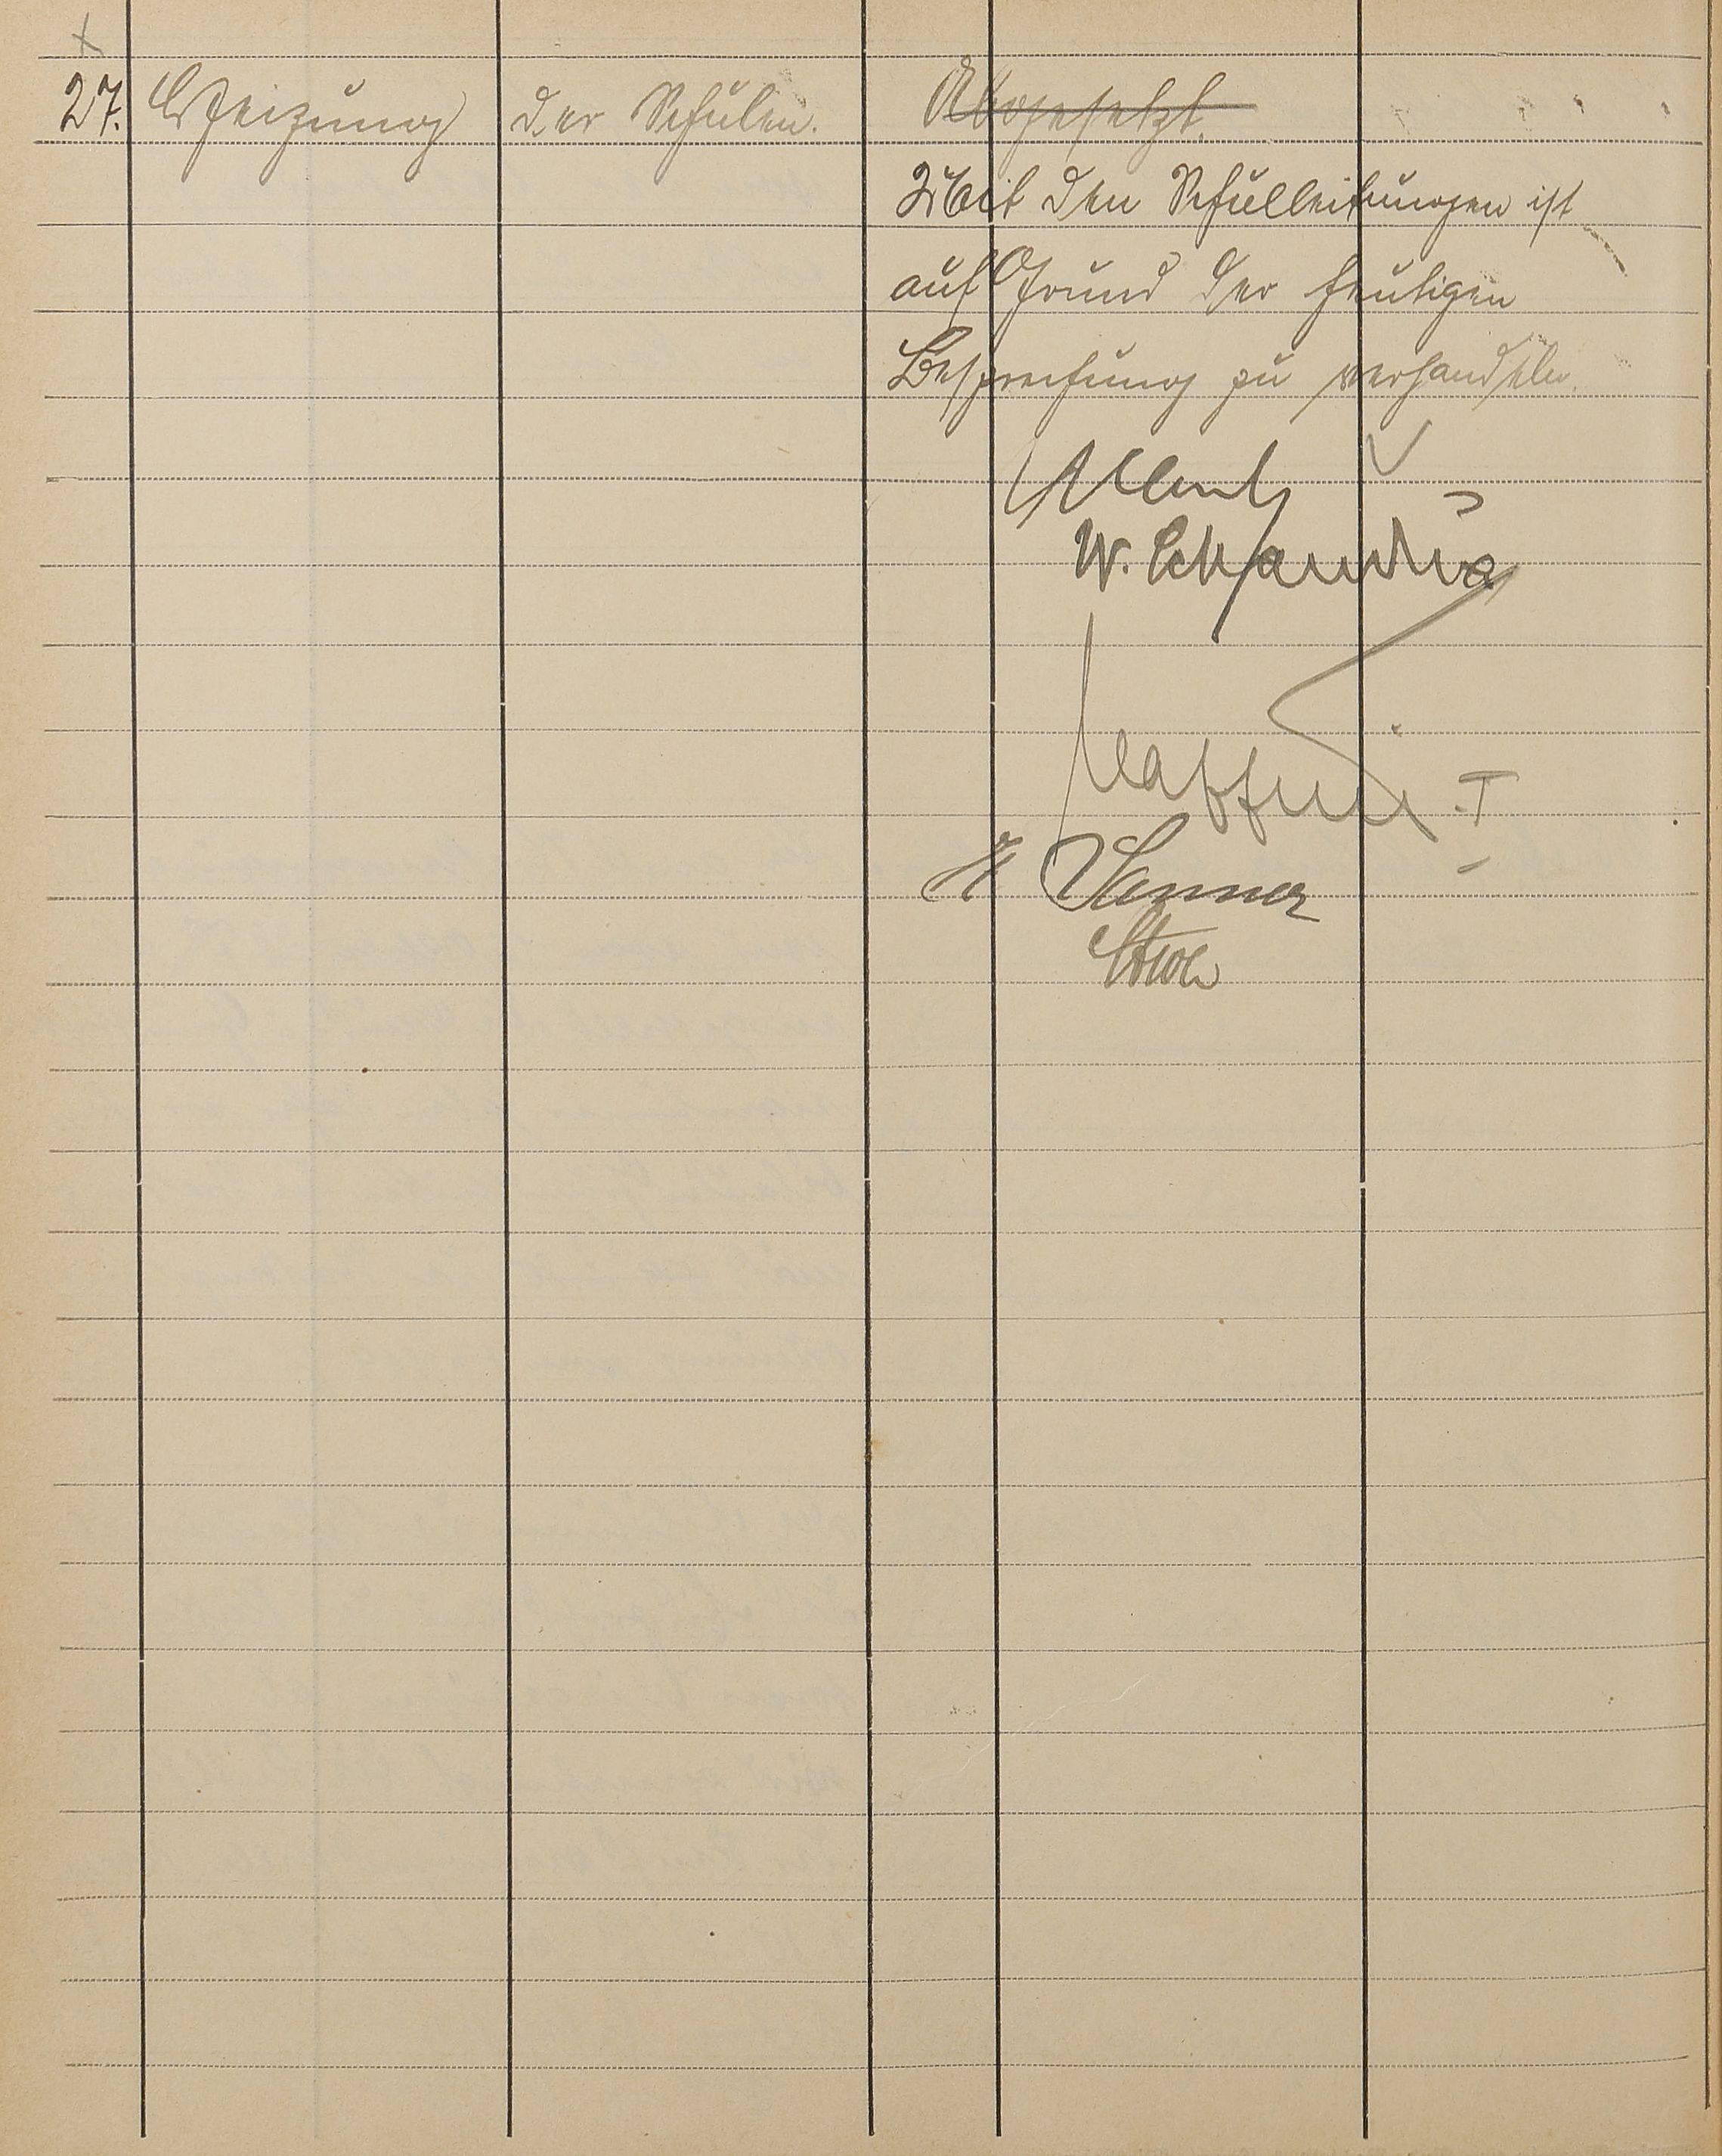 27. Heizung der Schulen. Abgesetzt.
Mit den Schulleitungen ist
auf Grund der heutigen
Besprechung zu verhandeln.
W.
H Sanner